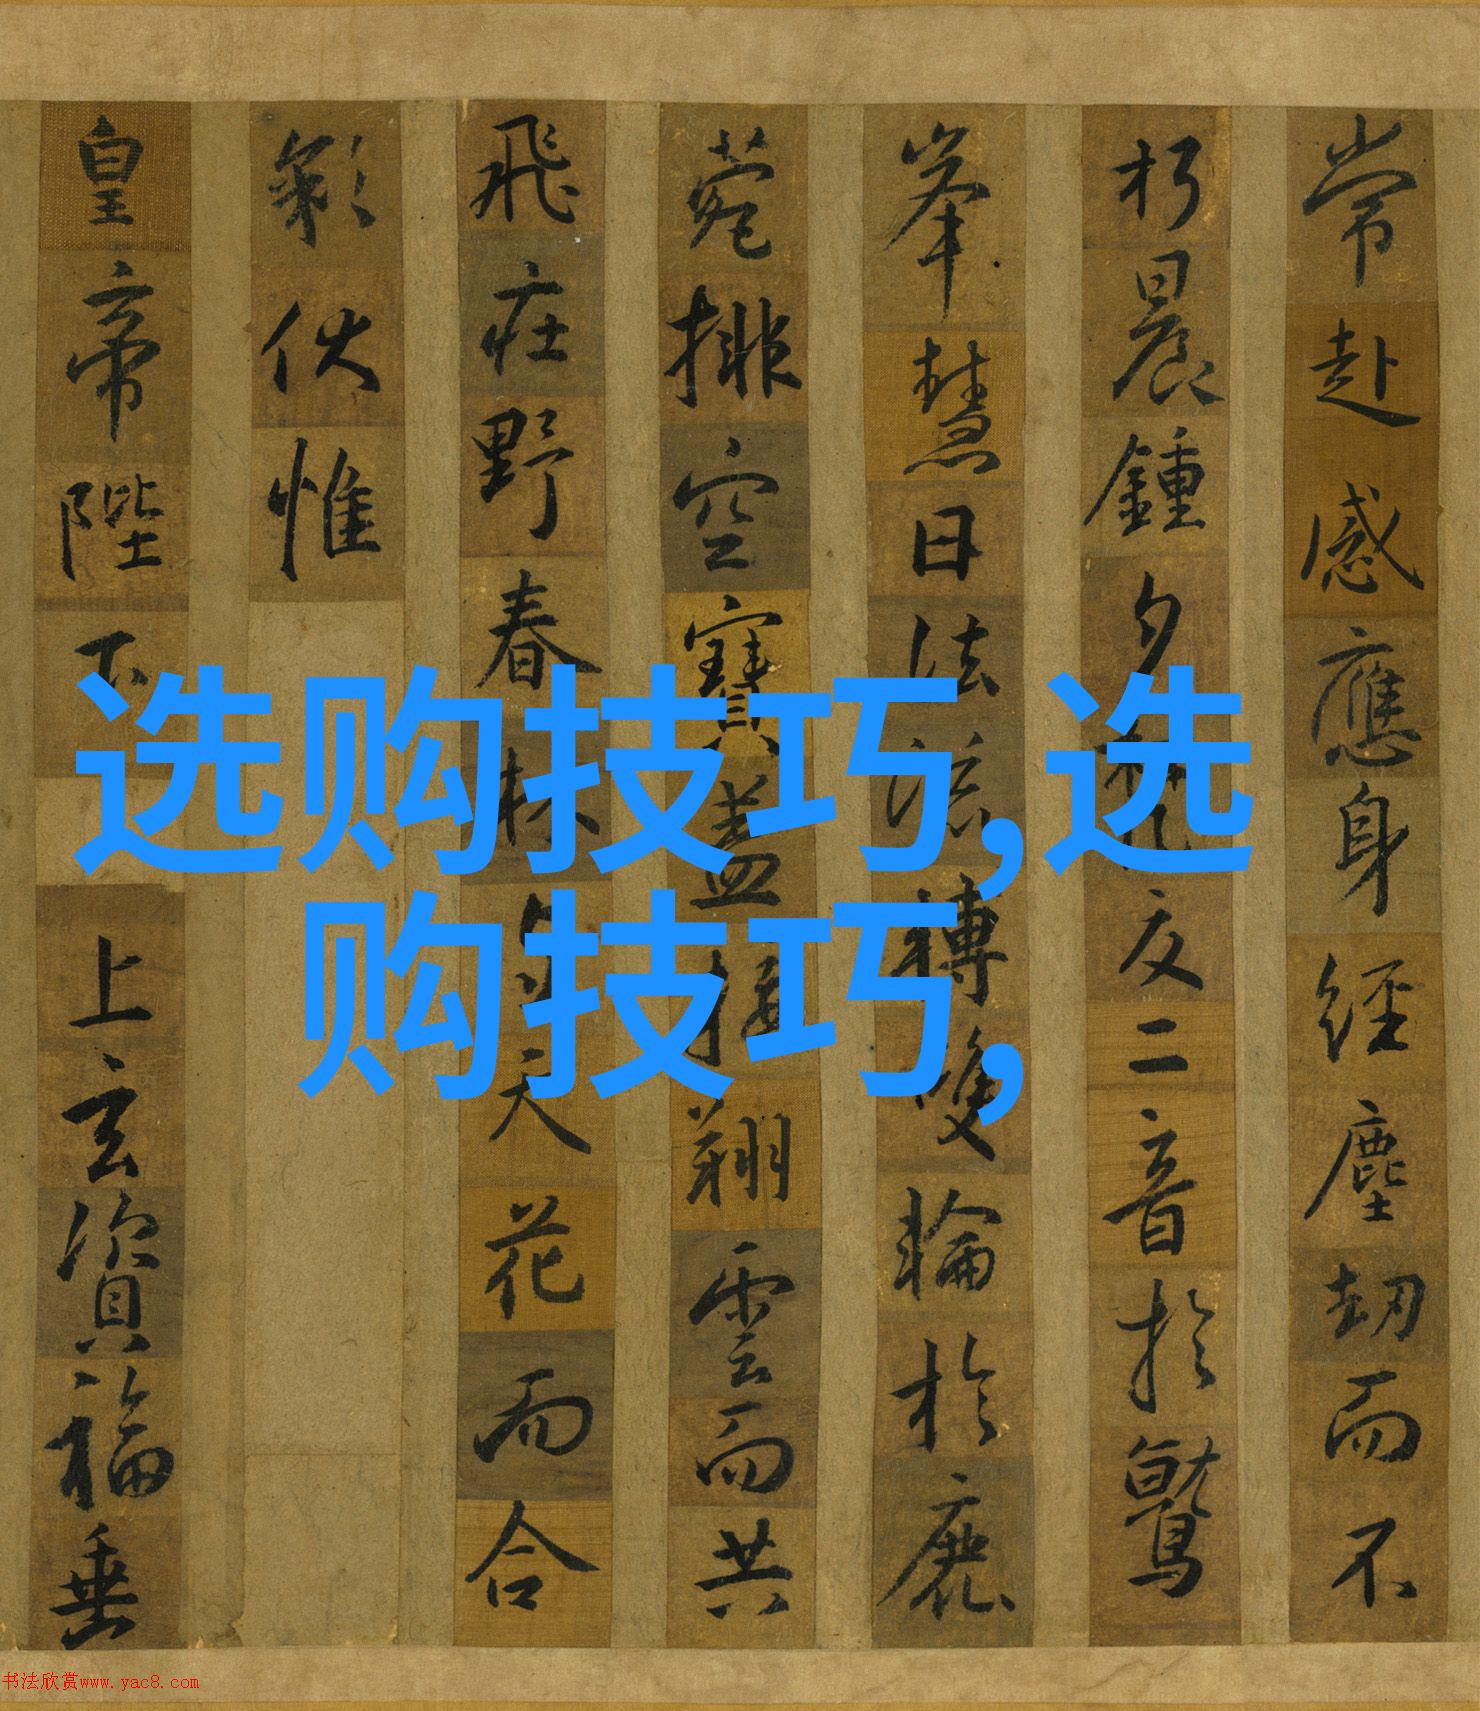 常赴感應身經塵劫而不
朽晨鍾夕交二音於鷲
峯慧日法流轉雙輪於鹿
菀排空寶蓋接翔雲而共
飛莊野春林天花而合
彩伏惟
皇帝陛下
上玄資福垂
选购技巧,选
购技巧,
书法欣赏www.yac8.com